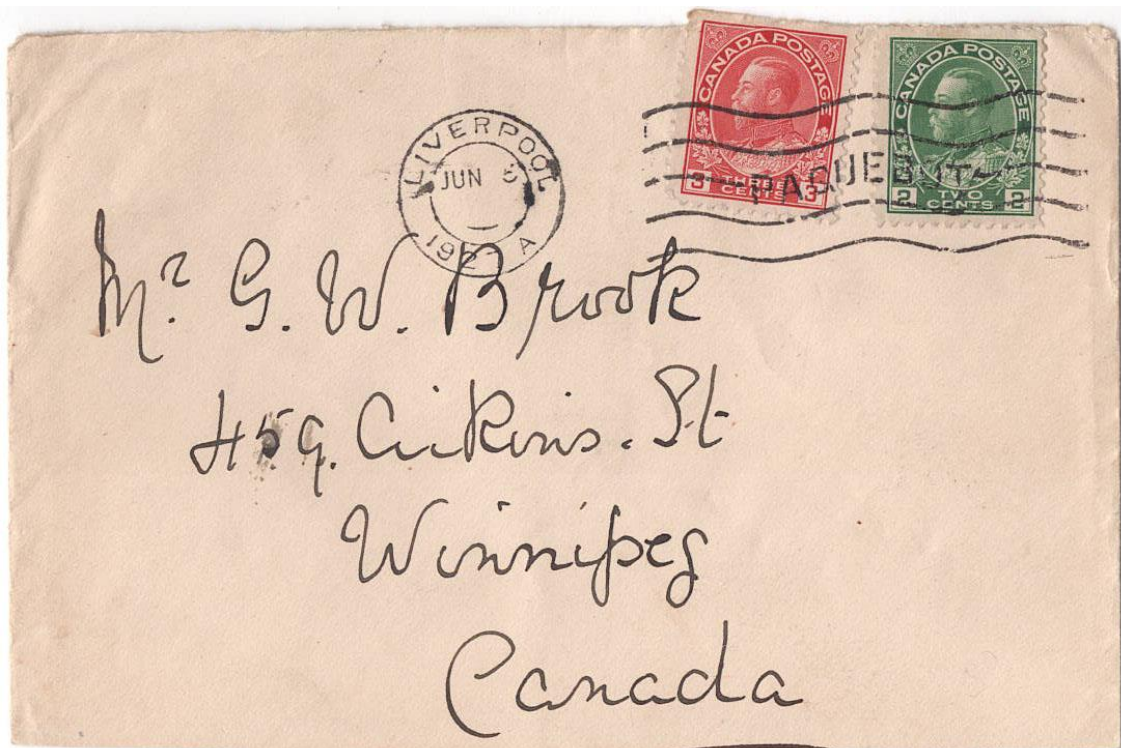 CANADA POSTAGE
3 THREE CENTS 3
CANADA POSTAGE
2 TWO CENTS 2
PAQUEBOT
LIVERPOOL
JUN
A
Mr. G. W. Brook
459. Aikins. St
Winnipeg
Canada